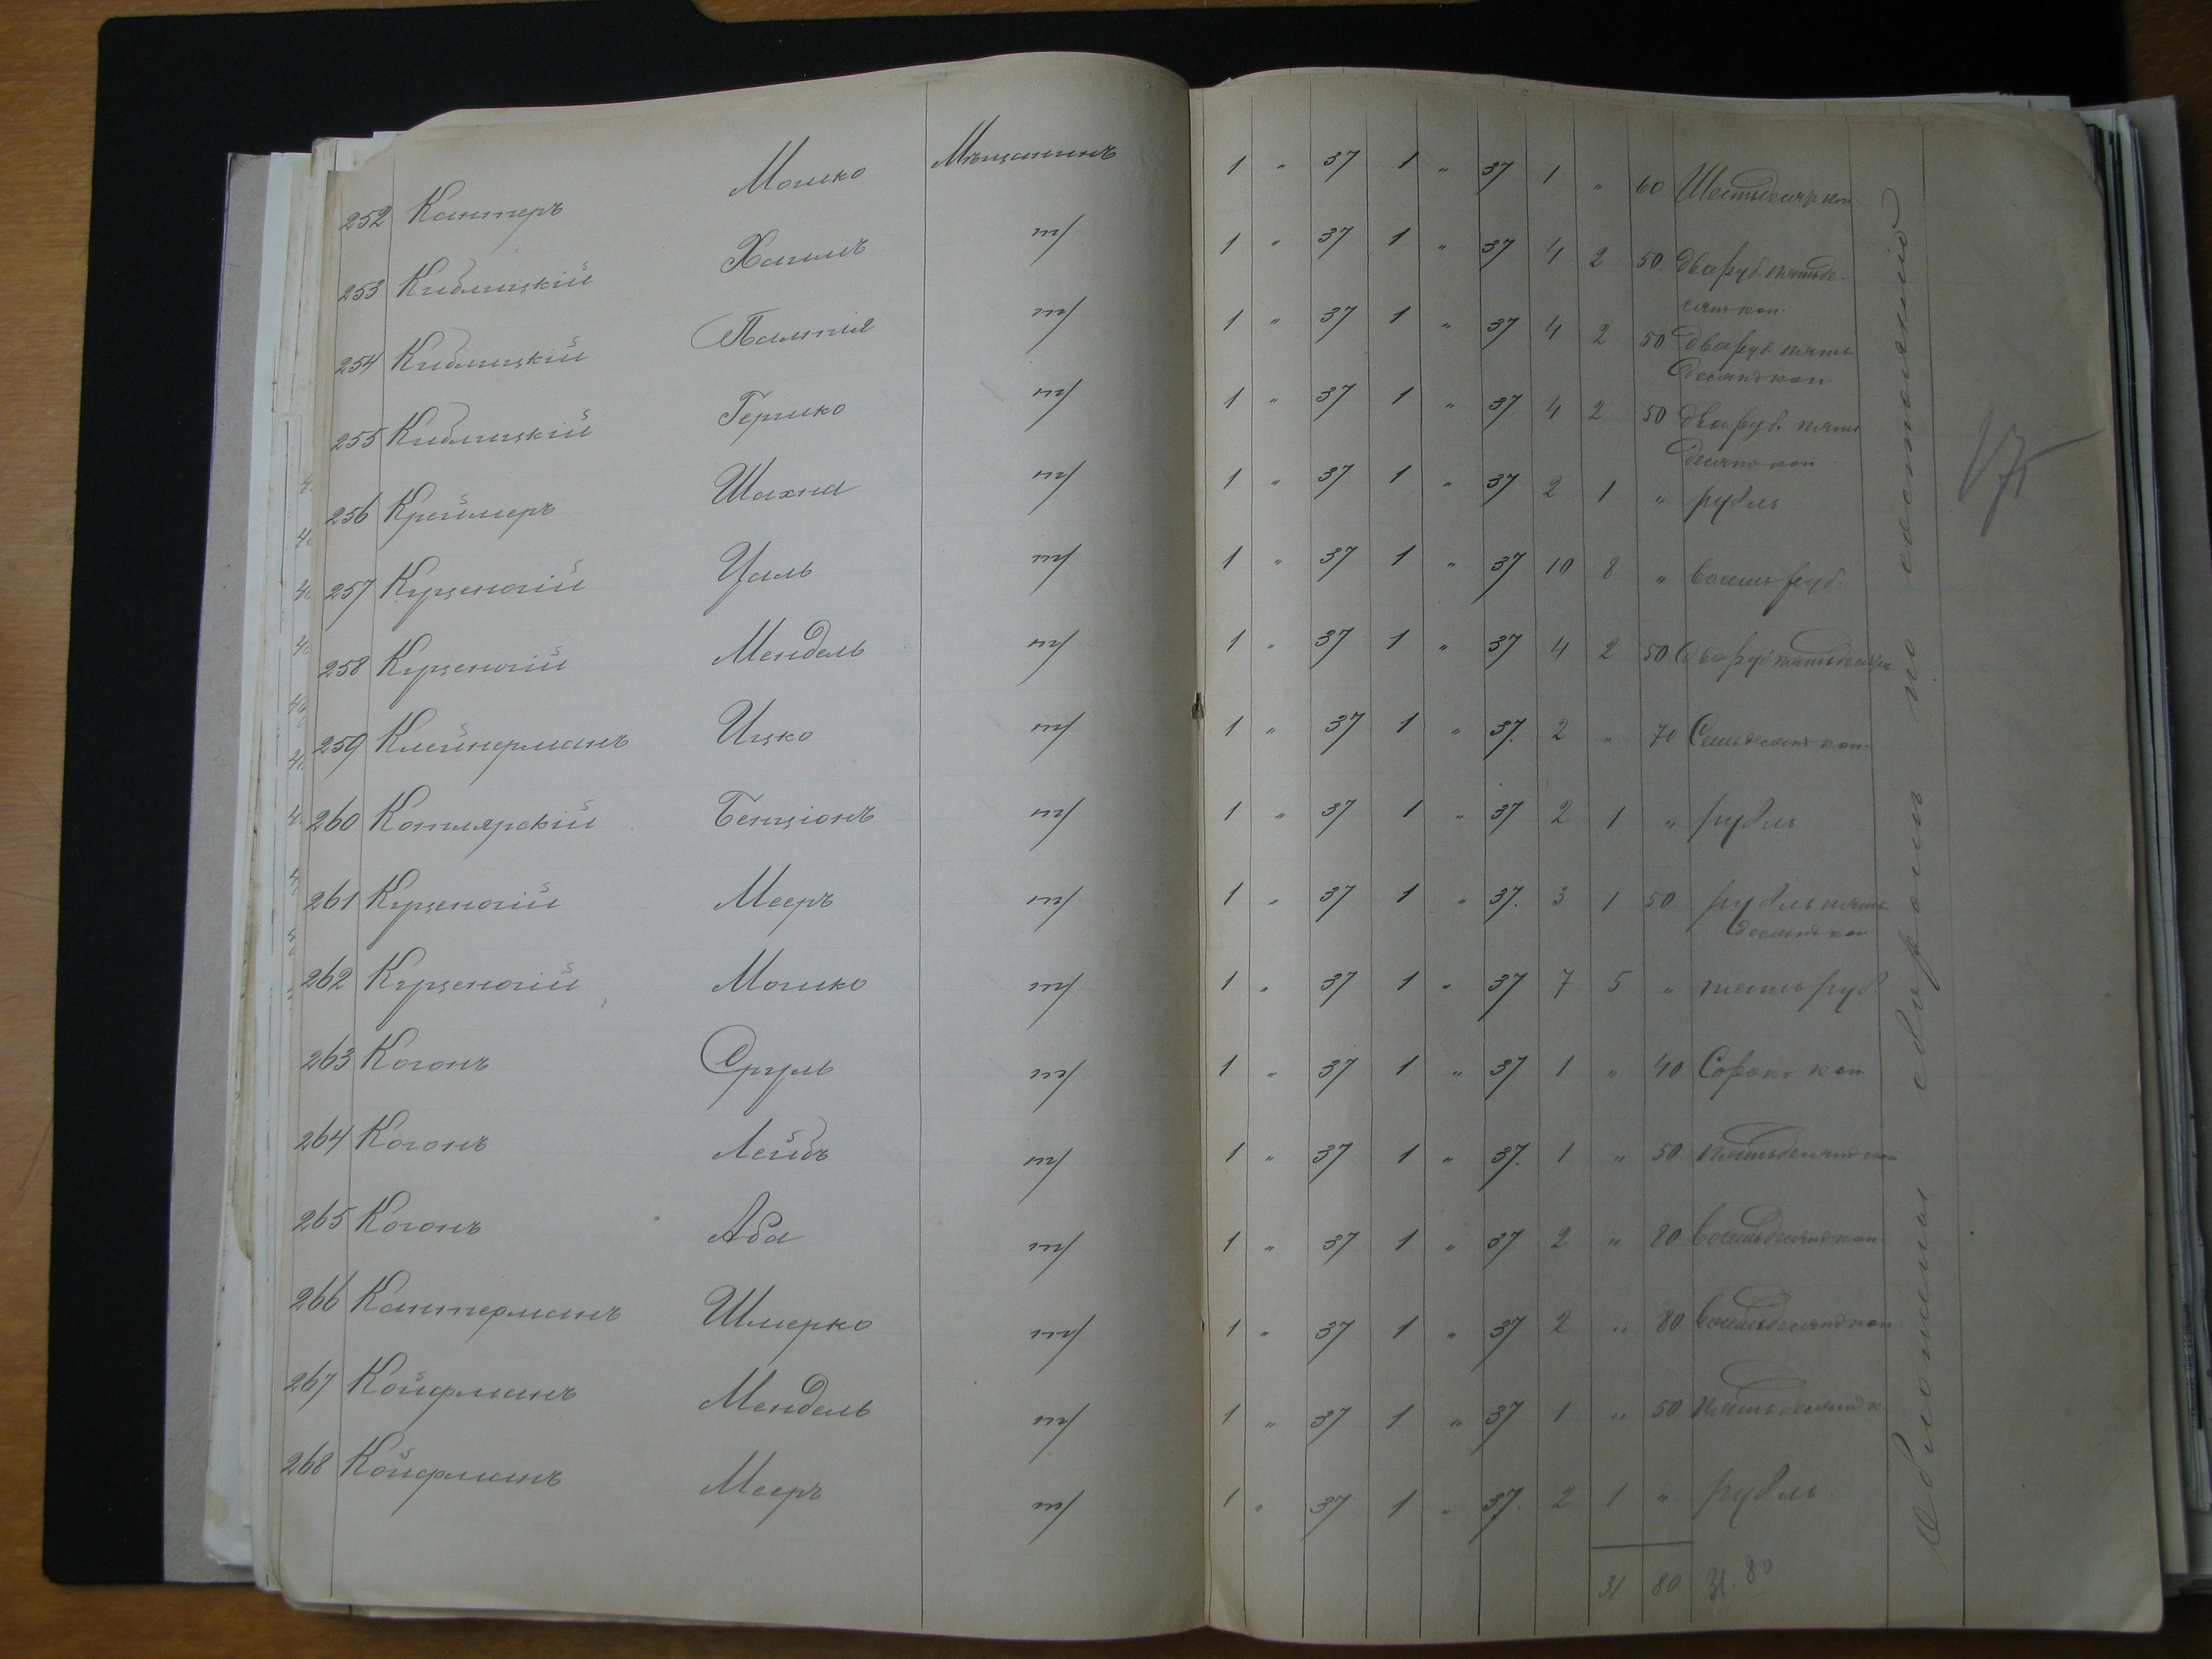 252 Кантеръ Мошко Мѣщанинъ 1 " 37 1 " 37 1 " 60 Шестьдесят коп
253 Киблицкій Хаимъ т/ 1 " 37 1 " 37 4 2 50 два руб. пятьде-
сят коп.
254 Киблицкій т/ 1 " 37 1 " 37 4 2 50 два руб. пять
десятъ коп.
255 Киблицкій Гершко т/ 1 " 37 1 " 37 4 2 50 два руб. пять
десятъ коп
256 Креймеръ Шахна т/ 1 " 37 1 " 37 2 1 " рубль
257 Куценогій Удель т/ 1 " 37 1 " 37 10 8 " восемь руб.
258 Куценогій Мендель т/ 1 " 37 1 " 37 4 2 50 два руб. пятьдесят к
259 Клейнерманъ Ицко т/ 1 " 37 1 " 37. 2 " 70 Семьдесятъ коп.
260 Котлярскій Бенціонъ т/ 1 " 37 1 " 37 2 1 " рубль
261 Куценогій Мееръ т/ 1 " 37 1 " 37. 3 1 50 рубль пять
десятъ коп
262 Куценогій Мошко т/ 1 " 37 1 " 37 7 5 " пять руб.
263 Когонъ Сруль т/ 1 " 37 1 " 37 1 " 40 Сорокъ коп
264 Когонъ Лейбъ т/ 1 " 37 1 " 37. 1 " 50. пятьдесятъ коп
265 Когонъ Аба т/ 1 " 37 1 " 37 2 " 80 восемьдесятъ коп.
266 Кантерманъ Шмерко т/ 1 " 37 1 " 37 2 " 80 восемьдесятъ коп
267 Койфманъ Мендель т/ 1 " 37 1 " 37 1 " 50 пятьдесятъ к.
268 Койфманъ Мееръ т/ 1 " 37 1 " 37. 2 1 " рубль
31 80 31. 80
Обложены сборомъ по состоянію